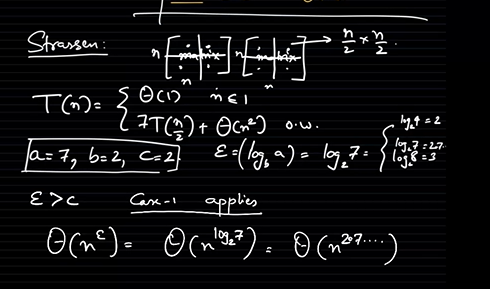 Strassen: n [matrix] n [matrix] → n/2 × n/2.
n n
T(n) = { Θ(1) n ≤ 1
7T(n/2) + Θ(n²) o.w.
a=7, b=2, c=2 ε = (log_b a) = log₂7 = { log₂4 = 2
log₂7 = 2.7..
log₂8 = 3
ε > c Case-1 applies
Θ(n^ε) = Θ(n^log₂7) = Θ(n^2.7....)